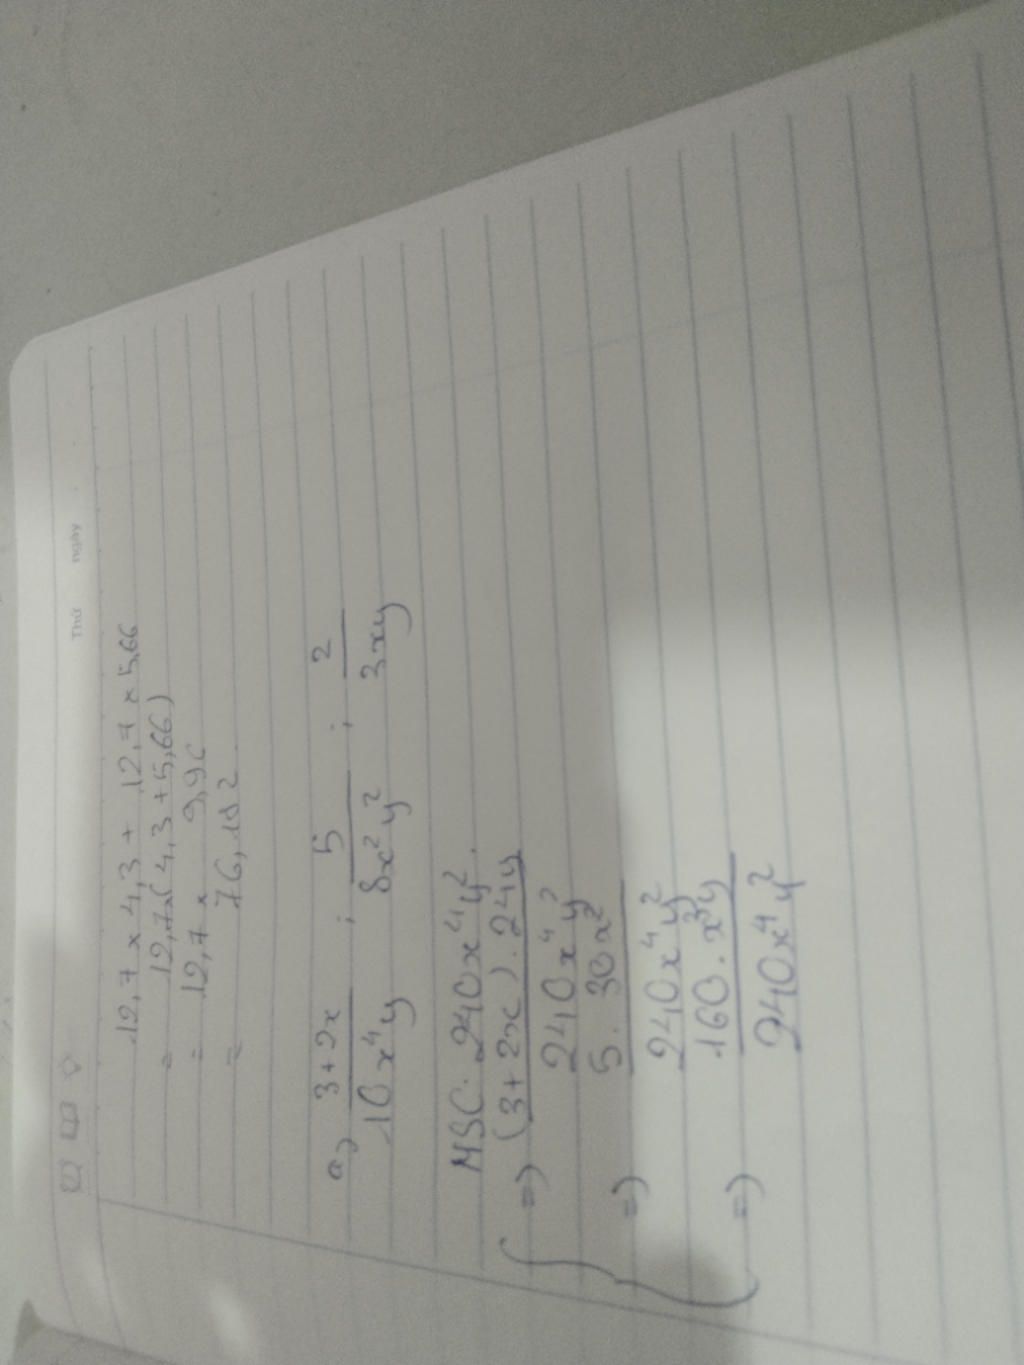 Thứ ngày
12,7 x 4,3 + 12,7 x 5,66
= 12,7 x (4,3 + 5,66)
= 12,7 x 9,96
= 76,182
a) 3+2x/10x⁴y ; 5/8x²y² ; 2/3xy
MSC: 240x⁴y².
=) (3+2x).24y/240x⁴y²
=) 5.30x²/240x⁴y²
=) 160.x³y/240x⁴y²